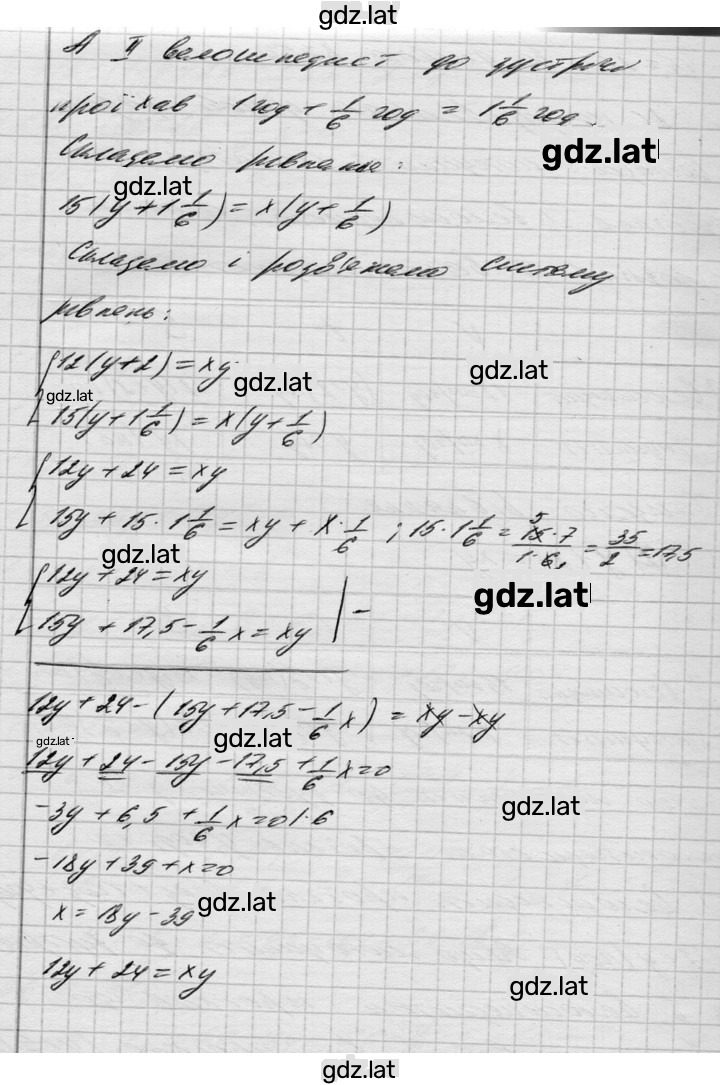 gdz.lat
А II велосипедист до зустрічі
проїхав 1 год + 1/6 год = 1 1/6 год.
gdz.lat
Складемо рівняння:
gdz.lat
15(y + 1 1/6) = x(y + 1/6)
Складемо і розв'яжемо систему
рівнянь:
{12(y+2) = xy
gdz.lat gdz.lat
gdz.lat
15(y + 1 1/6) = x(y + 1/6)
{12y + 24 = xy
15y + 15 · 1 1/6 = xy + x · 1/6 ; 15 · 1 1/6 = 15 · 7 / 1 · 6 = 35/2 = 17,5
gdz.lat
{12y + 24 = xy
gdz.lat
15y + 17,5 - 1/6 x = xy | -
12y + 24 - (15y + 17,5 - 1/6 x) = xy - xy
gdz.lat gdz.lat
12y + 24 - 15y - 17,5 + 1/6 x = 0
gdz.lat
-3y + 6,5 + 1/6 x = 0 | · 6
-18y + 39 + x = 0
gdz.lat
x = 18y - 39
12y + 24 = xy
gdz.lat
gdz.lat